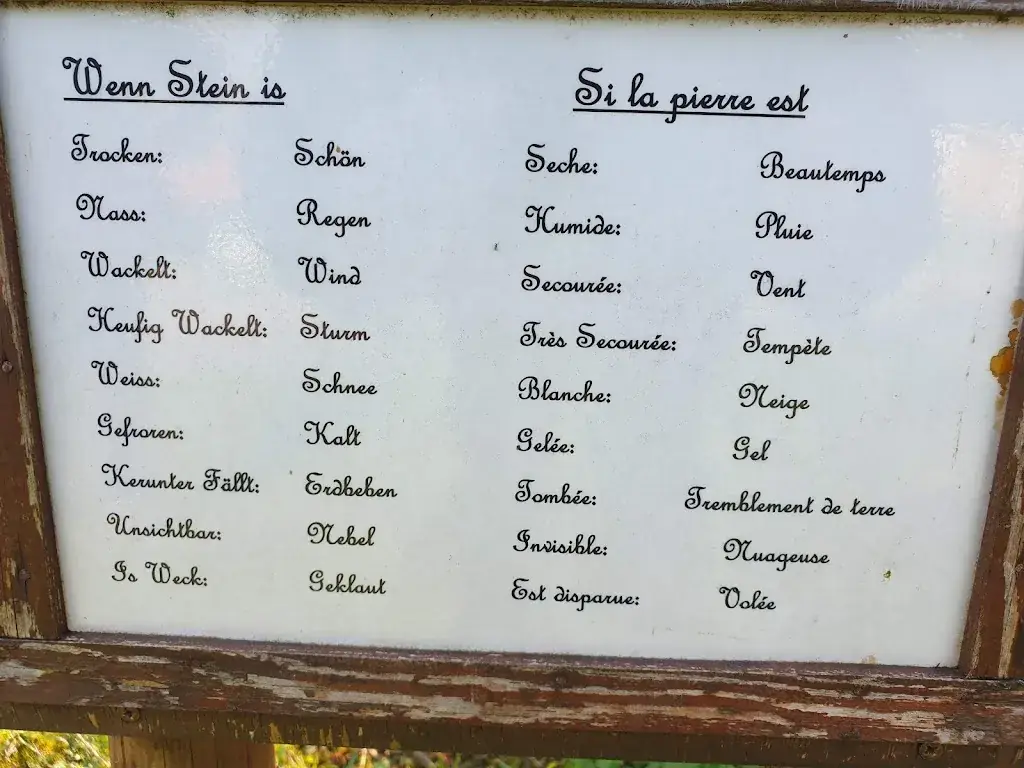 Wenn Stein is
Trocken: Schön
Nass: Regen
Wackelt: Wind
Heufig Wackelt: Sturm
Weiss: Schnee
Gefroren: Kalt
Herunter Fällt: Erdbeben
Unsichtbar: Nebel
Is Weck: Geklaut
Si la pierre est
Seche: Beautemps
Humide: Pluie
Secourée: Vent
Très Secourée: Tempète
Blanche: Neige
Gelée: Gel
Tombée: Tremblement de terre
Invisible: Nuageuse
Est disparue: Volée